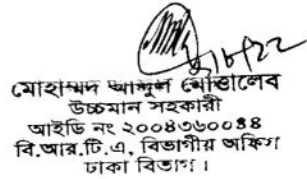 ৮/৮/২২
মোহাম্মদ আব্দুল মোত্তালেব
উচ্চমান সহকারী
আইডি নং ২০০৪৩৬০০৪৪
বি.আর.টি.এ, বিভাগীয় অফিস
ঢাকা বিভাগ।